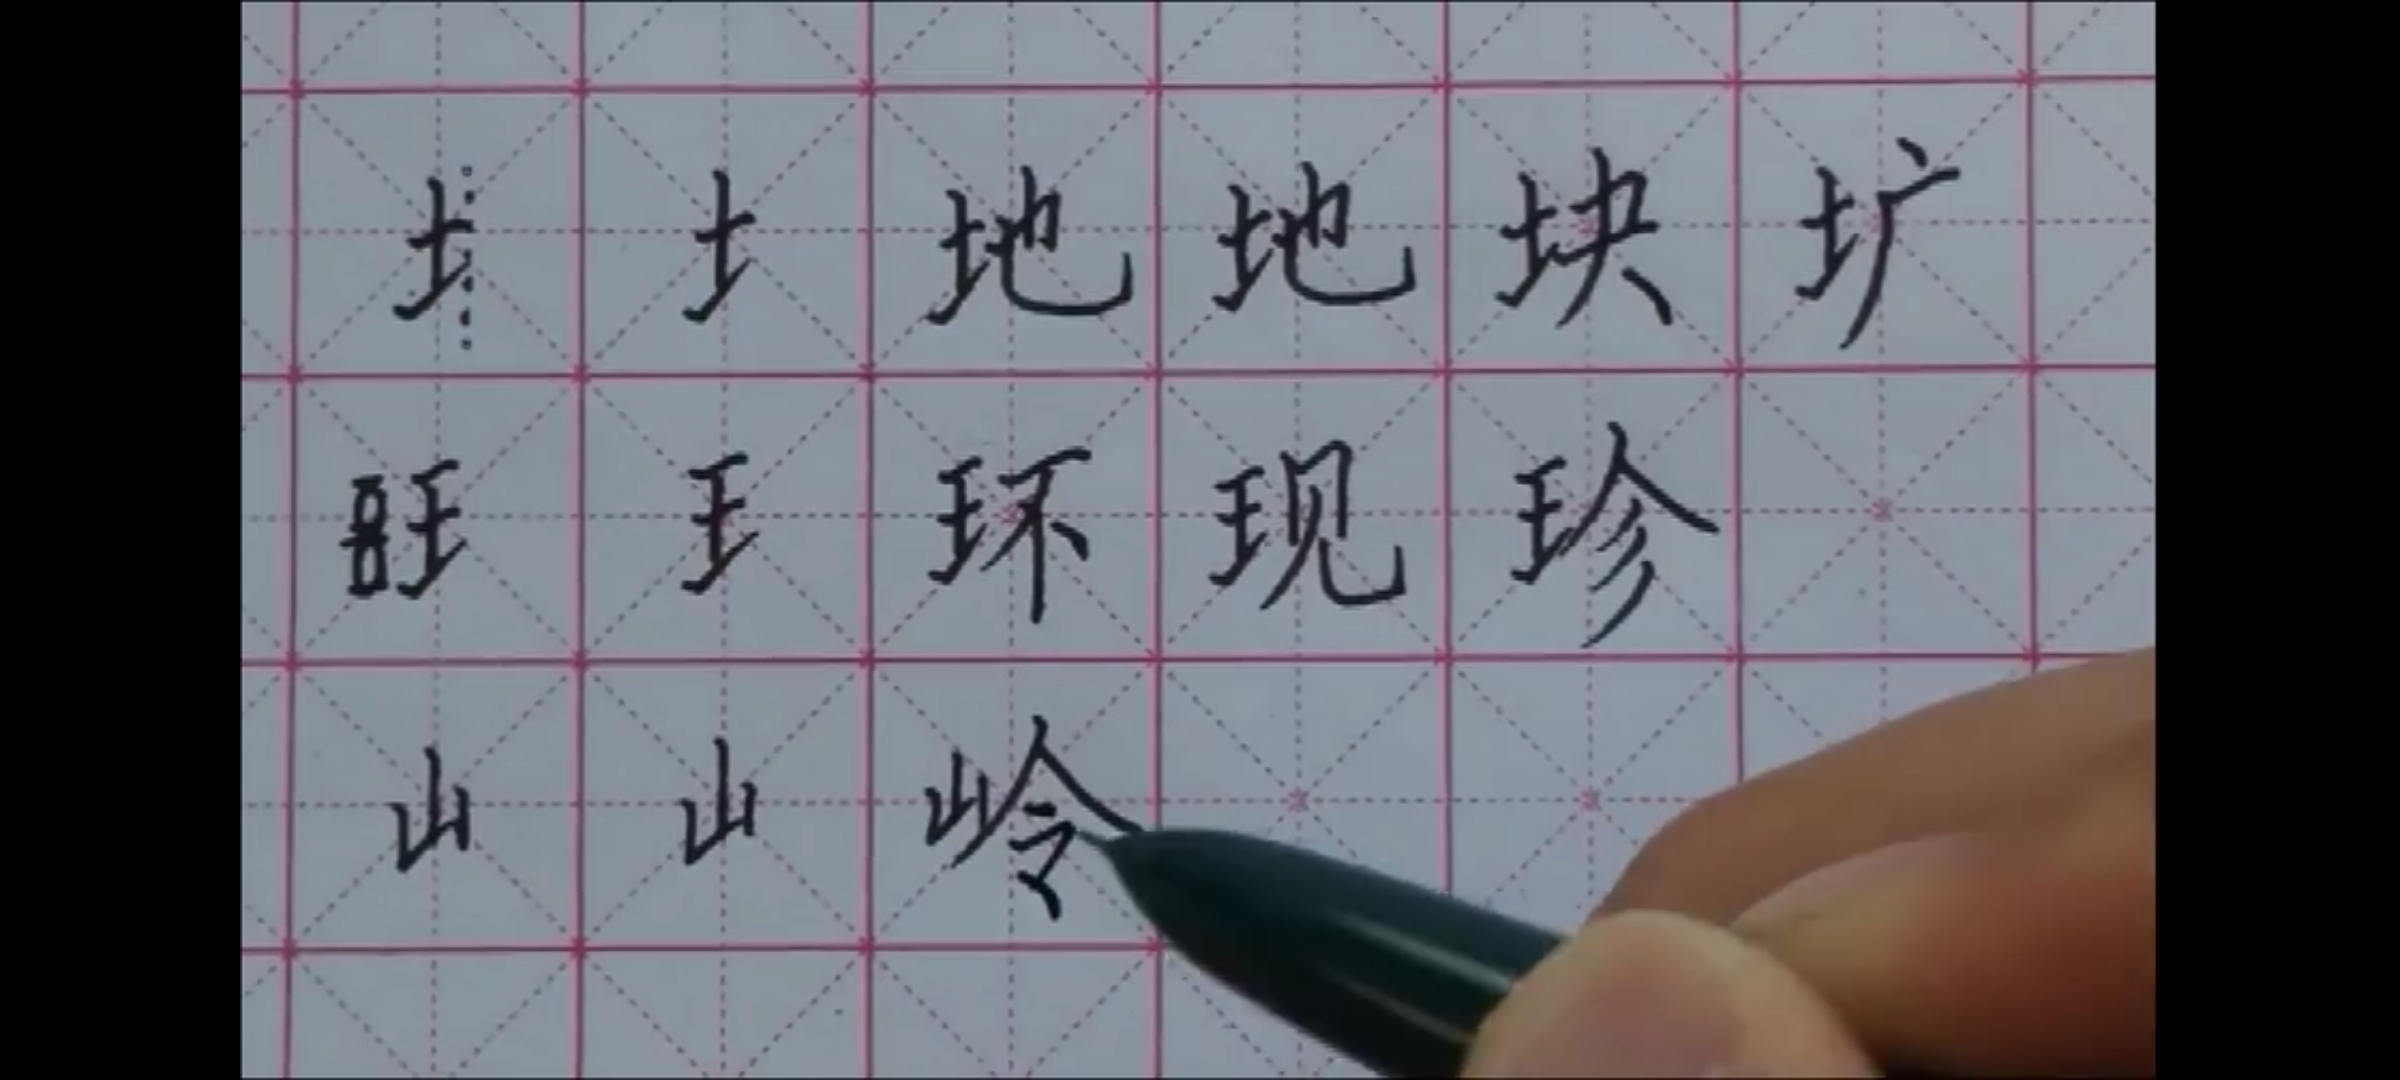 土 土 地 地 块 圹
王 王 环 现 珍
山 山 岭